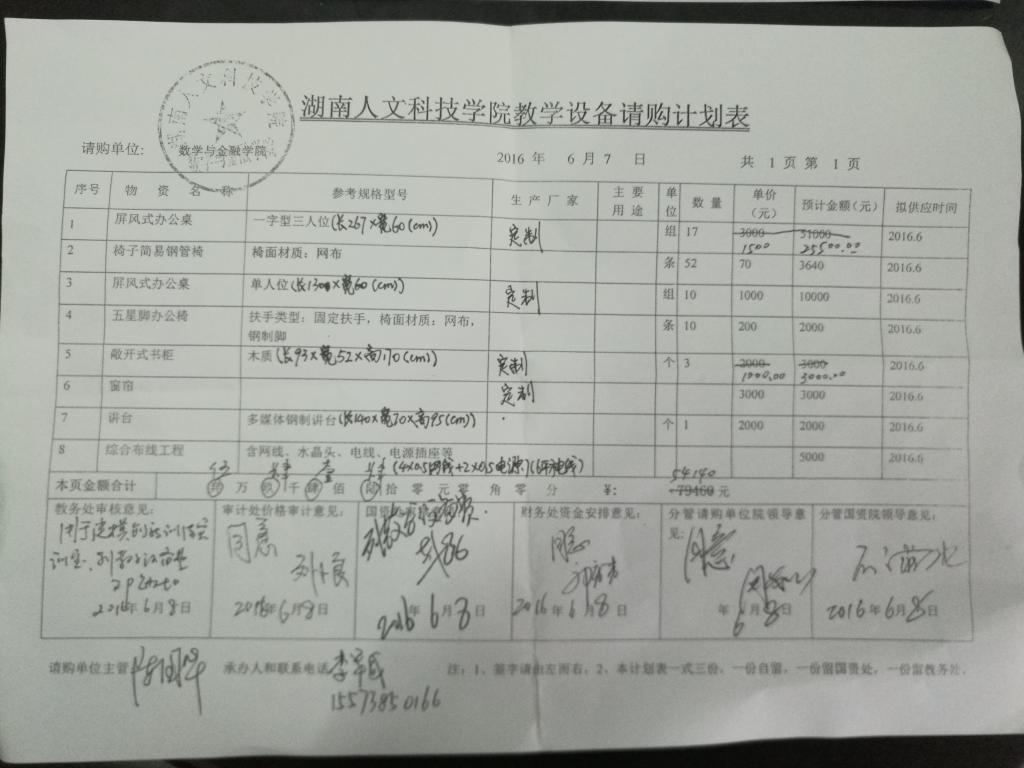 湖南人文科技学院教学设备请购计划表
湖南人文科技学院
数学与金融学院
请购单位: 数学与金融学院 2016 年 6 月 7 日 共 1 页 第 1 页
序号 物 资 名 称 参考规格型号 生 产 厂 家 主 要 用 途 单位 数 量 单价（元） 预计金额（元） 拟供应时间
1 屏风式办公桌 一字型三人位(长267×宽60(cm)) 定制 组 17 3000 1500 51000 25500.00 2016.6
2 椅子简易钢管椅 椅面材质：网布 条 52 70 3640 2016.6
3 屏风式办公桌 单人位(长130×宽60(cm)) 定制 组 10 1000 10000 2016.6
4 五星脚办公椅 扶手类型：固定扶手，椅面材质：网布，
钢制脚 条 10 200 2000 2016.6
5 敞开式书柜 木质(长93×宽52×高170(cm)) 定制 个 3 2000 1000.00 3000 3000.00 2016.6
6 窗帘 定制 3000 3000 2016.6
7 讲台 多媒体钢制讲台(长140×宽70×高95(cm)) 个 1 2000 2000 2016.6
8 综合布线工程 含网线、水晶头、电线、电源插座等 5000 2016.6
本页金额合计 伍 万 肆 千 壹 佰 肆 拾 零 元 零 角 零 分 ¥: 54140 79460 元
教务处审核意见： 审计处价格审计意见： 财务处资金安排意见： 分管请购单位院领导意见： 分管国资院领导意见：
同意 同意 同意
2016年6月8日 2016年6月8日 2016年6月8日 2016年6月8日 年6月8日 2016年6月8日
请购单位主管 承办人和联系电话
15573850166
注：1、签字请由左而右。2、本计划表一式三份，一份自留，一份留国资处，一份留教务处。